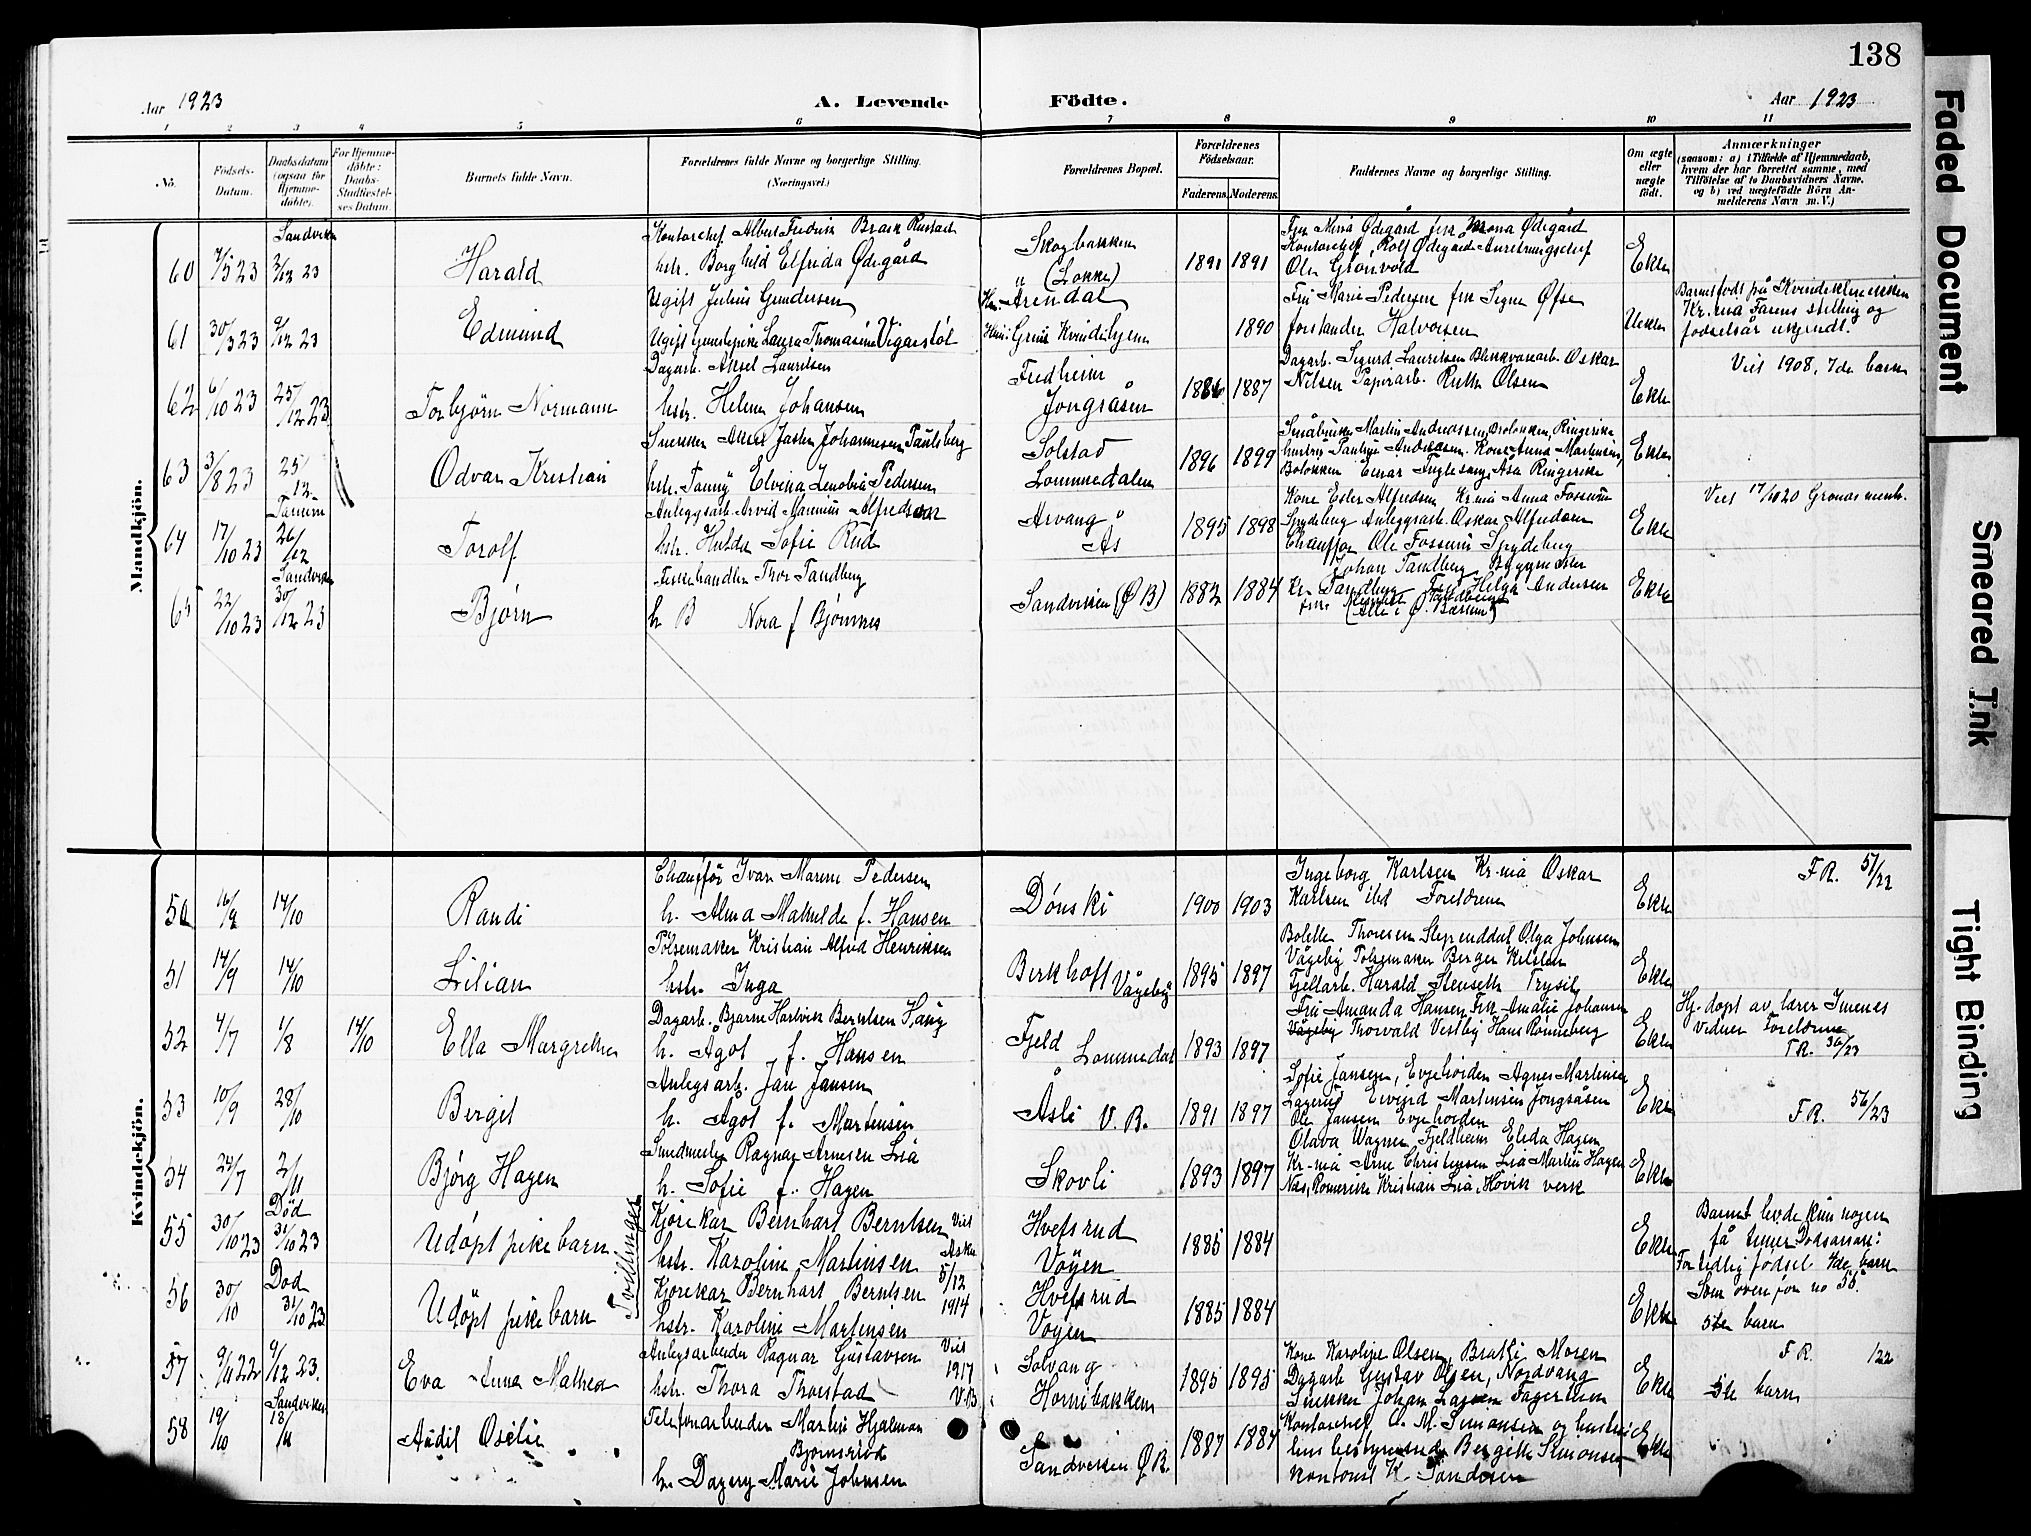 138
Aar 1923
A. Levende
Födte.
Aar 1923
1 2 3 4 5 6 7 8 9 10 11
No.
Födsels-
Datum.
Daabsdatum
(ogsaa for
Hjemme-
döbte).
For Hjemme-
döbte:
Daabs-
Stadfæstel-
ses Datum.
Barnets fulde Navn.
Forældrenes fulde Navne og borgerlige Stilling.
(Næringsvei.)
Forældrenes Bopæl.
Forældrenes
Födselsaar.
Faderens. Moderens.
Faddernes Navne og borgerlige Stilling.
Om ægte
eller
uægte
født.
Anmærkninger
(saasom: a) i Tilfælde af Hjemmedaab,
hvem der har forrettet samme, med
Tilføielse af to Daabsvidners Navne,
og b) ved uægtefödte Börn An-
melderens Navn m. V.)
Mandkjön.
60 7/5 23
Sandviken
2/12 23
Harald
Kontorchef Albert Fredrik Rustad
hstr. Borghild Elfrida Ødegård
Skogbakken
" (Løkke)
1891 1891
Fru Nina Ødegård frk Mona Ødegård
Kontorchef Rolf Ødegård
Ole Grönvold
Ekte
61 30/3 23 9/12 23
Edmund
Ugift Julius Gundersen
Ugift Laura Thomasine Vigarstöl
Arendal
1890
Fru Marie Pedersen frk Signe Øfse
forstander Halvorsen
Uekte
Barnet født på Kvindeklinikken
Kr.nia Farens stilling og
fødselsår ukjendt.
62 6/10 23 25/12 23
Torbjørn Normann
Dagarb. Aksel Lauritsen
hstr. Helene Johansen
Fredheim
Jongsåsen
1886 1887
Dagarb. Sigurd Lauritsen Blikkvarearb. Oskar
Nilsen Papirarb. Ruth Olsen
Ekte
Viet 1908, 7de barn
63 3/8 23 25/12
Odvar Kristian
Snekker Johannesen Paulsberg
hstr. Fanny Elvira Zenobia Pedersen
Solstad
Lommedalen
1896 1899
Småbruker Martin Andreassen, Ringerike
hustru Pauline Andreasen. Kone Anna Martinsen,
Einar Fuglesang, Åsa Ringerike
Ekte
64 17/10 23
Tanum
26/12
Torolf
Anleggsarb. Arvid Marinius Alfredsen
hstr. Hulda Sofie Rud
Arvang
Ås
1895 1898
Kone Ester Alfredsen Kr.nia Anna Fossum
Spydeberg Anleggsarb. Oskar Alfredsen
Chauffør Ole Fossum Spydeberg
Ekte
Viet 17/10 20 Grønas menh.
65 22/10 23
Sandviken
30/12 23
Bjørn
Fiskehandler Thor Tandberg
h. B Nora f Bjørnnes
Sandviken (Ø B)
1882 1884
Johan Tandberg Byggmester
Kr. Tandberg Fru Helga Andersen
(Alle i Ø. Bærum)
Ekte
Kvindekjön.
50 16/9 14/10
Randi
Chauffør Ivar Marino Pedersen
h. Alma Mathilde f. Hansen
Dønski
1900 1903
Ingeborg Karlsen Kr-nia Oskar
Karlsen ibd Foreldrene
Ekte
F R. 51/22
51 14/9 14/10
Lilian
Pölsemaker Kristian Alfred Henriksen
hstr. Inga
Berkhoff Vågeby
1895 1897
Bolette Thoresen Stependdal Olga Johnsen
Vågeby Pølsemaker Berger
Fjellarb. Harald Stenseth Trysil
Ekte
52 4/7 1/8 14/10
Ella Margrethe
Dagarb. Bjarne Hartvik Berntsen Haug
h. Ågot f. Hansen
Fjeld
Lommedal
1893 1897
Fru Amanda Hansen Frk Amalie Johansen
Vågeby Thorvald Vestby Hans Rønneberg
Ekte
Hj. døpt av lærer Imenes
vidner Foreldrene
F.R. 36/23
53 10/9 28/10
Bergit
Anlegsarb. Jan Jansen
h. Agot f. Martinsen
Åsli V. B.
1891 1897
Sofie Jansen, Evjehviden Agnes Martinsen
Lagerud Eivind Martinsen Jongsåsen
Ole Jansen Evjehviden
Ekte
F R. 56/23
54 24/7 2/11
Bjørg Hagen
Smedmester Ragnar Arnesen Lia
h. Sofie f. Hagen
Skovli
1893 1897
Olava Wagner Fjeldheim Elida Hagen
Kr-nia Arne Christensen Lia Martin Hagen
Nes, Romerike Kristian Lia, Høvik verk
Ekte
55 30/10 23
Død
31/10 23
Udøpt pikebarn
Tvillinger
Kjørekar Bernhart Berntsen
hstr. Karoline Martinsen
Viet
Asker
5/12
1914
Hvefsrud
Vöyen
1885 1884
Ekte
Barnet levde kun nogen
få timer Dødsårsak:
For tidlig fødsel 4de barn
56 30/10
Død
31/10 23
Udøpt pikebarn
Kjørekar Bernhart Berntsen
hstr. Karoline Martinsen
Hvefsrud
Vøyen
1885 1884
Ekte
Som ovenfor no 55.
5te barn
57 9/11 22 9/12 23.
Eva Anna Mathea
Anlegsarbeider Ragnar Gustavsen
hstr. Thora Thorstad
Viet
1917
V.B
Solvang
Hornibakken
1895 1895
Kone Karoline Olsen, Bratli Moren
Dagarb Gustav Olsen, Nordvang
Snekker Johan Larsen Fagerheim
Ekte
F R. 122
5te barn
58 19/10
Sandviken
18/11
Audil Oselie
Telefonarbeider Martin Hjalmar
Bjørnerød
h. Dagny Marie Johnsen
Sandviken Ø.B.
1887 1887
Kontorchef O. M. Simonsen og hustru
husbestyrerinde Bergitte Simonsen
kontorist K. Sandersen
Ekte
Faded Document
Smeared Ink
Tight Binding